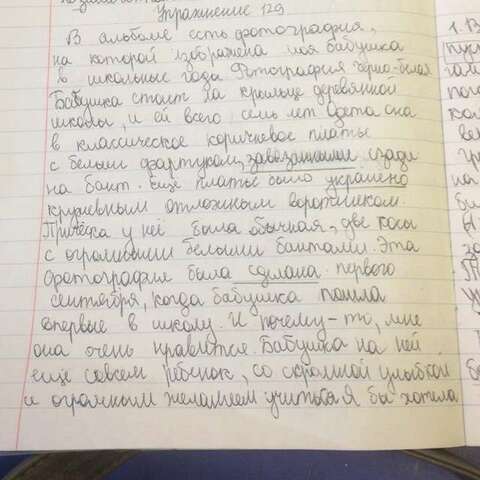 Упражнение 129
В альбоме есть фотография,
на которой изображена моя бабушка
в школьные года Фотография чёрно-белая
Бабушка стоит на крыльце деревянной
школы, и ей всего семь лет одета она
в классическое коричневое платье
с белым фартуком, завязанным сзади
на бант. Ещё платье было украшено
кружевным отложным воротником.
Причёска у неё была обычная, две косы
с огромными белыми бантами. Эта
фотография была сделана первого
сентября, когда бабушка пошла
впервые в школу. И почему-то, мне
она очень нравится. Бабушка на ней
ещё совсем ребёнок, со скромной улыбкой
и огромным желанием учиться Я бы хотела
1. В